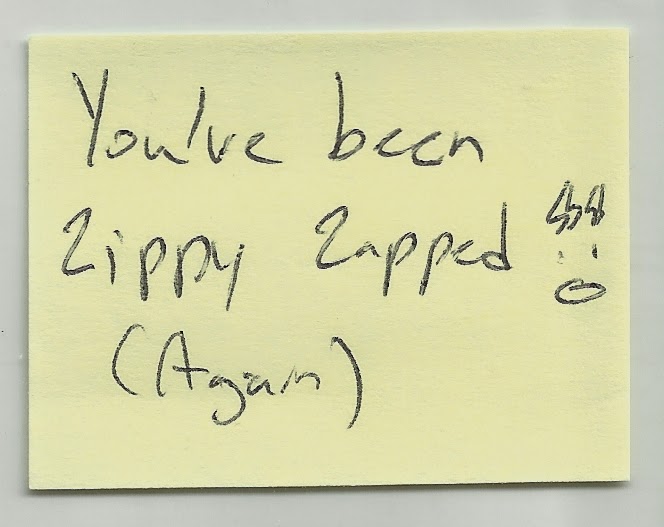 You've been
Zippy Zapped
(Again)